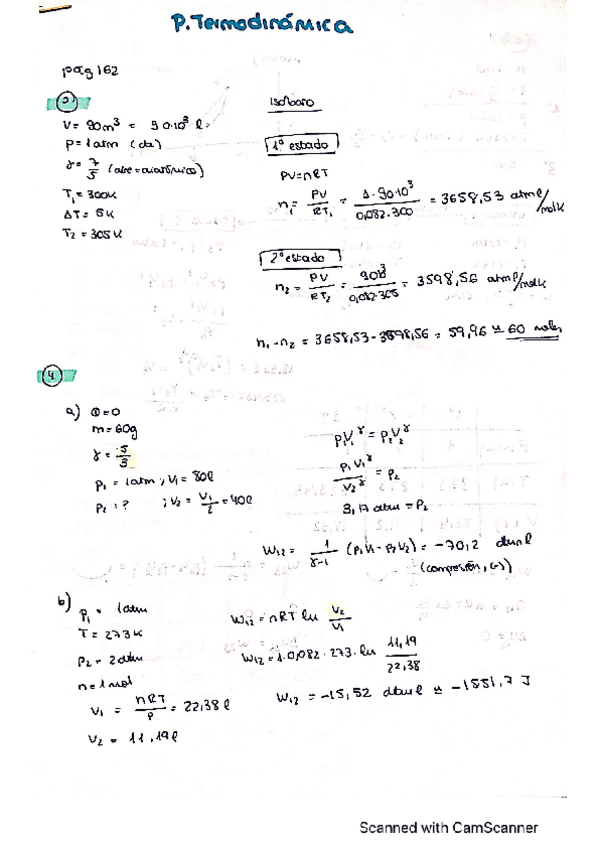 P. Termodinámica
pág 162
V = 90m³ = 90·10³ l
P = 1 atm (cte)
γ = 7/5 (aire = diatómico)
T₁ = 300K
ΔT = 5K
T₂ = 305K
Isóbaro
1º estado
PV = nRT
n₁ = PV/RT₁ = 1·90·10³/0,082·300 = 3658,53 atm l/mol K
2º estado
n₂ = PV/RT₂ = 90·10³/0,082·305 = 3598,56 atm l/mol K
n₁ - n₂ = 3658,53 - 3598,56 = 59,96 ≃ 60 moles
a) Q = 0
m = 60g
γ = 5/3
P₁ = 1 atm ; V₁ = 80 l
P₂ = ? ; V₂ = V₁/2 = 40 l
P₁V₁^γ = P₂V₂^γ
P₁V₁^γ/V₂^γ = P₂
3,17 atm = P₂
W₁₂ = 1/γ-1 (P₁V₁ - P₂V₂) = -70,2 atm l
(compresión, (-))
b) P₁ = 1 atm
T = 273K
P₂ = 2 atm
n = 1 mol
V₁ = nRT/P = 22,38 l
V₂ = 11,19 l
W₁₂ = nRT ln V₂/V₁
W₁₂ = 1·0,082·273·ln 11,19/22,38
W₁₂ = -15,52 atm l ≃ -1551,7 J
Scanned with CamScanner